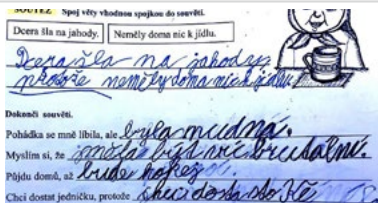 SOUTĚŽ Spoj věty vhodnou spojkou do souvětí.
Dcera šla na jahody. Neměly doma nic k jídlu.
Dcera šla na jahody,
protože neměly doma nic k jídlu.
Dokonči souvětí.
Pohádka se mně líbila, ale byla nudná.
Myslím si, že mohla být víc brutální.
Půjdu domů, až bude hokej.
Chci dostat jedničku, protože chci dostat sto Kč